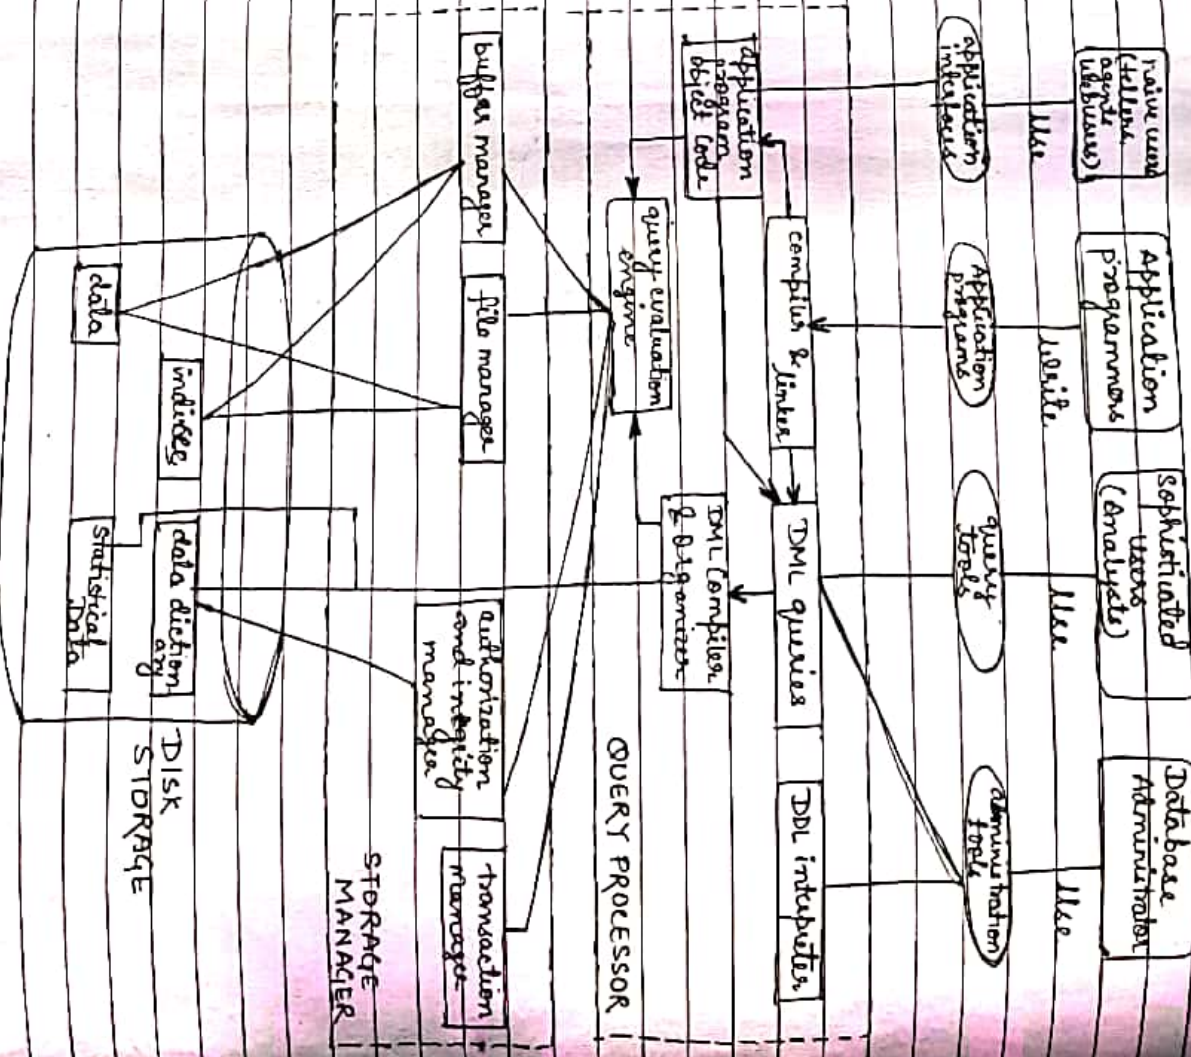 naive users
(tellers,
agents
webusers)
Application
programmers
Sophisticated
Users
(Analysts)
Database
Administrator
Use
Write
Use
Use
application
interfaces
Application
programs
query
tools
administration
tools
compiler & linker
DML queries
DDL interpreter
application
program
object code
DML Compiler
& Organizer
query evaluation
engine
QUERY PROCESSOR
buffer manager
file manager
authorization
and integrity
manager
transaction
manager
STORAGE
MANAGER
indices
data diction
ary
data
Statistical
Data
DISK
STORAGE